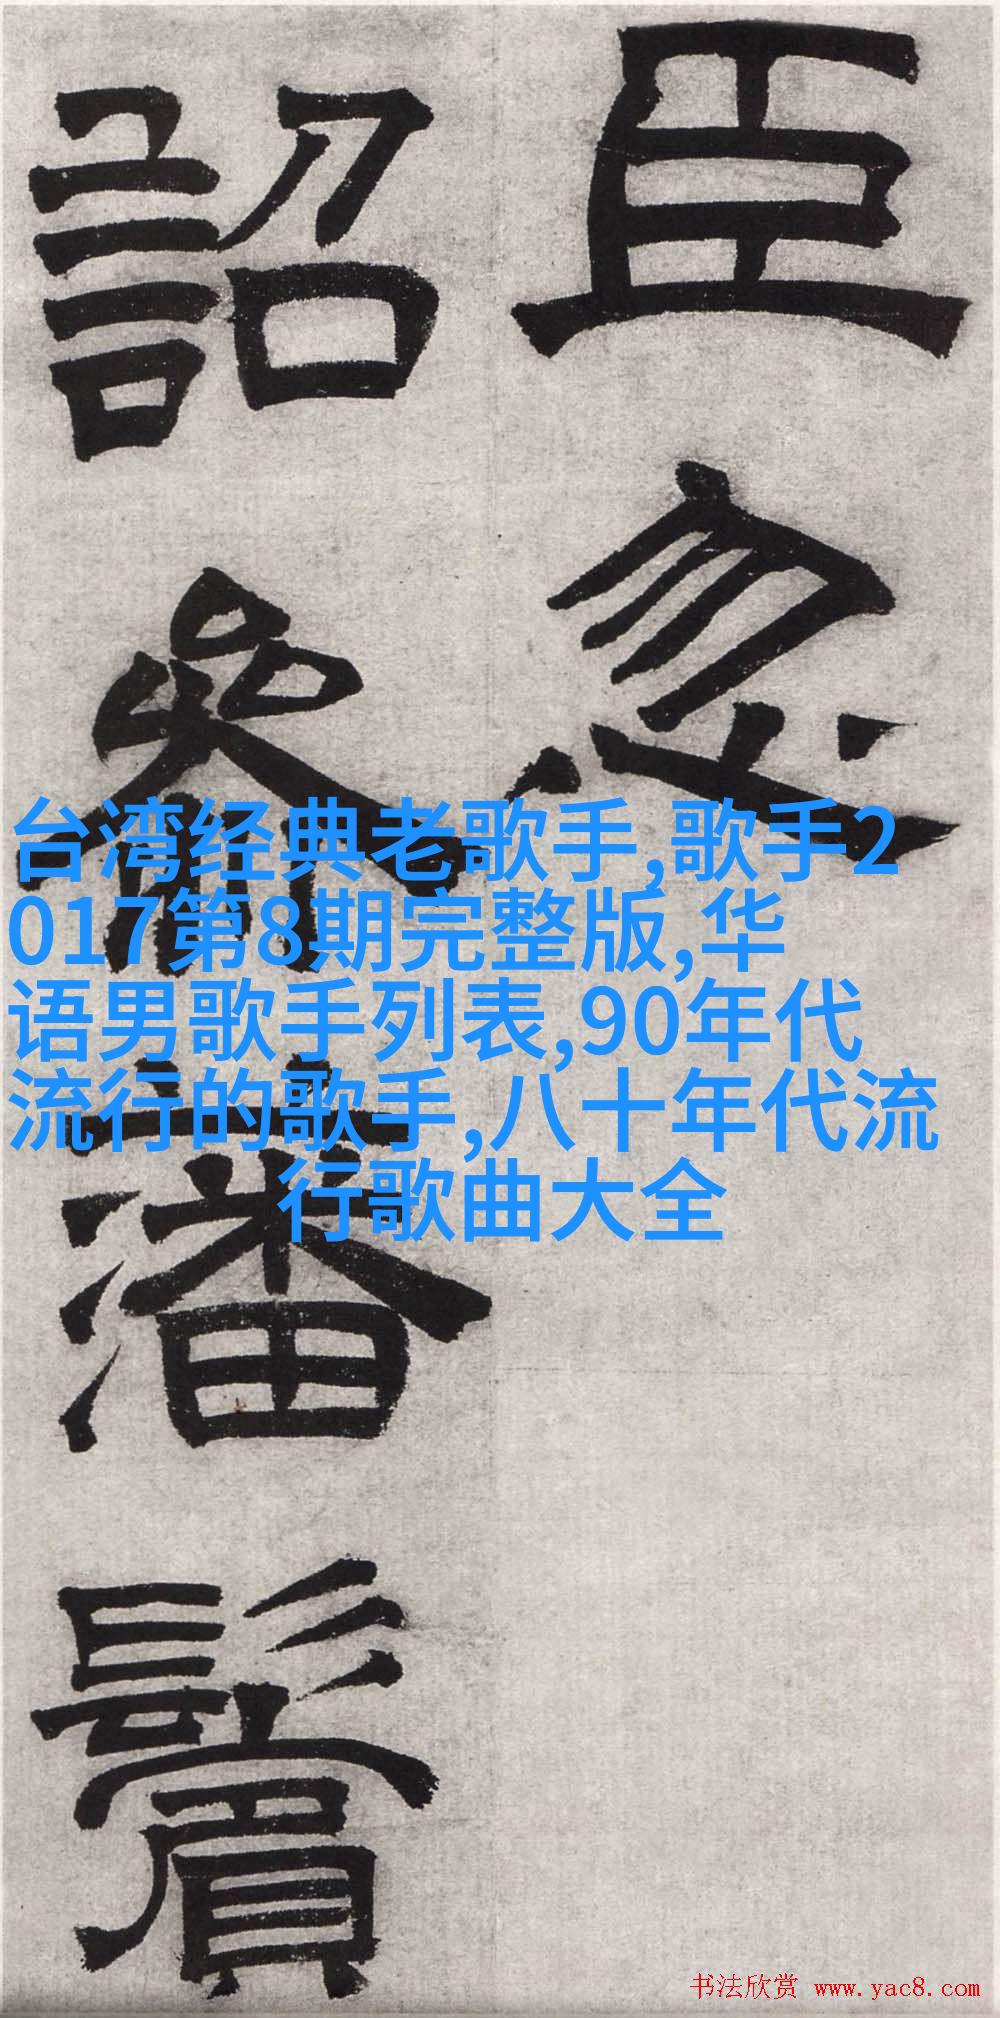 臣忽
詔參潘鬢
台湾经典老歌手,歌手2
017第8期完整版,华
语男歌手列表,90年代
流行的歌手,八十年代流
行歌曲大全
书法欣赏 www.yac8.com